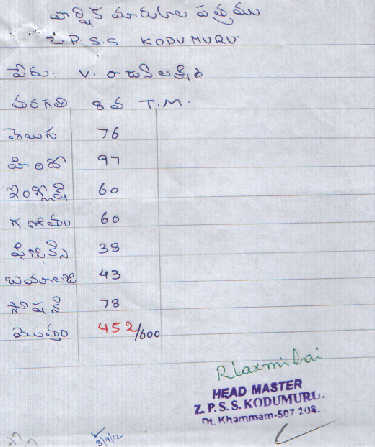 వార్షిక మార్కుల పత్రము
Z.P.S.S. KODUMURU
పేరు V. రాజేశ్వరి
తరగతి 8వ T.M.
తెలుగు 76
హిందీ 97
ఇంగ్లీష్ 60
గణితము 60
ఫిజిక్స్ 38
బయాలజి 43
సోషల్ 78
మొత్తం 452/600
R laxmi bai
HEAD MASTER
Z.P.S.S. KODUMURU.
Dt. Khammam-507 208.